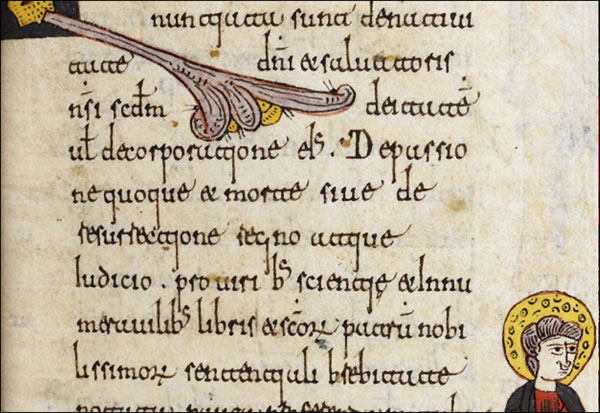 nuntiata sunt de natiui
tate dn̄i & saluatoris
nr̄i scdm̄ deitatē
ul̄ de corporatione eIs̄. De passio
ne quoque & morte siue de
resurrectione regno atque
Iudicio. pro uirib̄s scientię & Innu
merauilib̄s libris & scōꝝ patrū nobi
lissimoꝝ sententiali brebitate